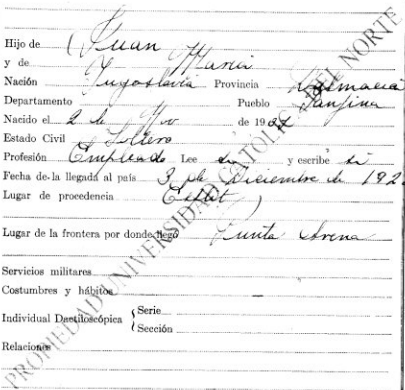 Hijo de Juan
y de Maria
Nación Jugoslavia Provincia Dalmacia
Departamento Pueblo
Nacido el 2 de de 192
Estado Civil Soltero
Profesión Empleado Lee si y escribe si
Fecha de la llegada al país 3 de Diciembre de 192
Lugar de procedencia
Lugar de la frontera por donde llegó Punta Arena
Servicios militares
Costumbres y hábitos
Individual Dactiloscópica Serie
Sección
Relaciones
PROPIEDAD UNIVERSIDAD CATÓLICA DEL NORTE